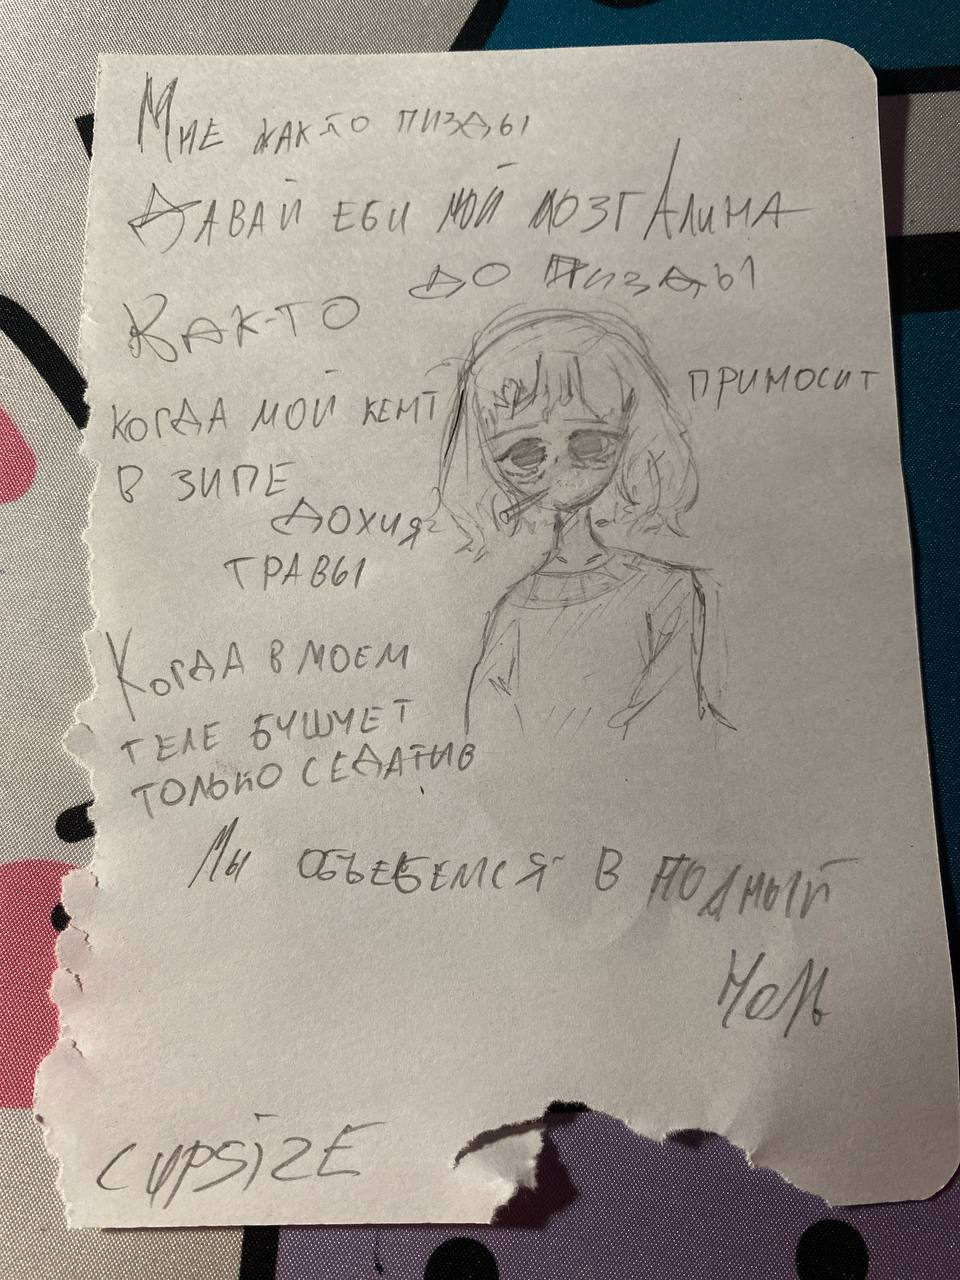 Мне как-то пизды
Давай еби мой мозг Алина
Как-то до пизды
когда мой кент приносит
в зипе
дохуя
травы
Когда в моем
теле бушует
только седатив
Мы объебемся в полный
ноль
CUPSIZE